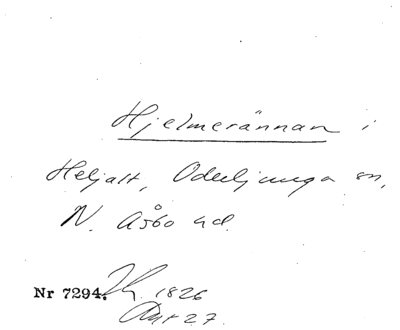 Hjelmerännan i
Heljalt, Oderljunga sn,
N. Åsbo hd.
Nr 7294. 1826
27.